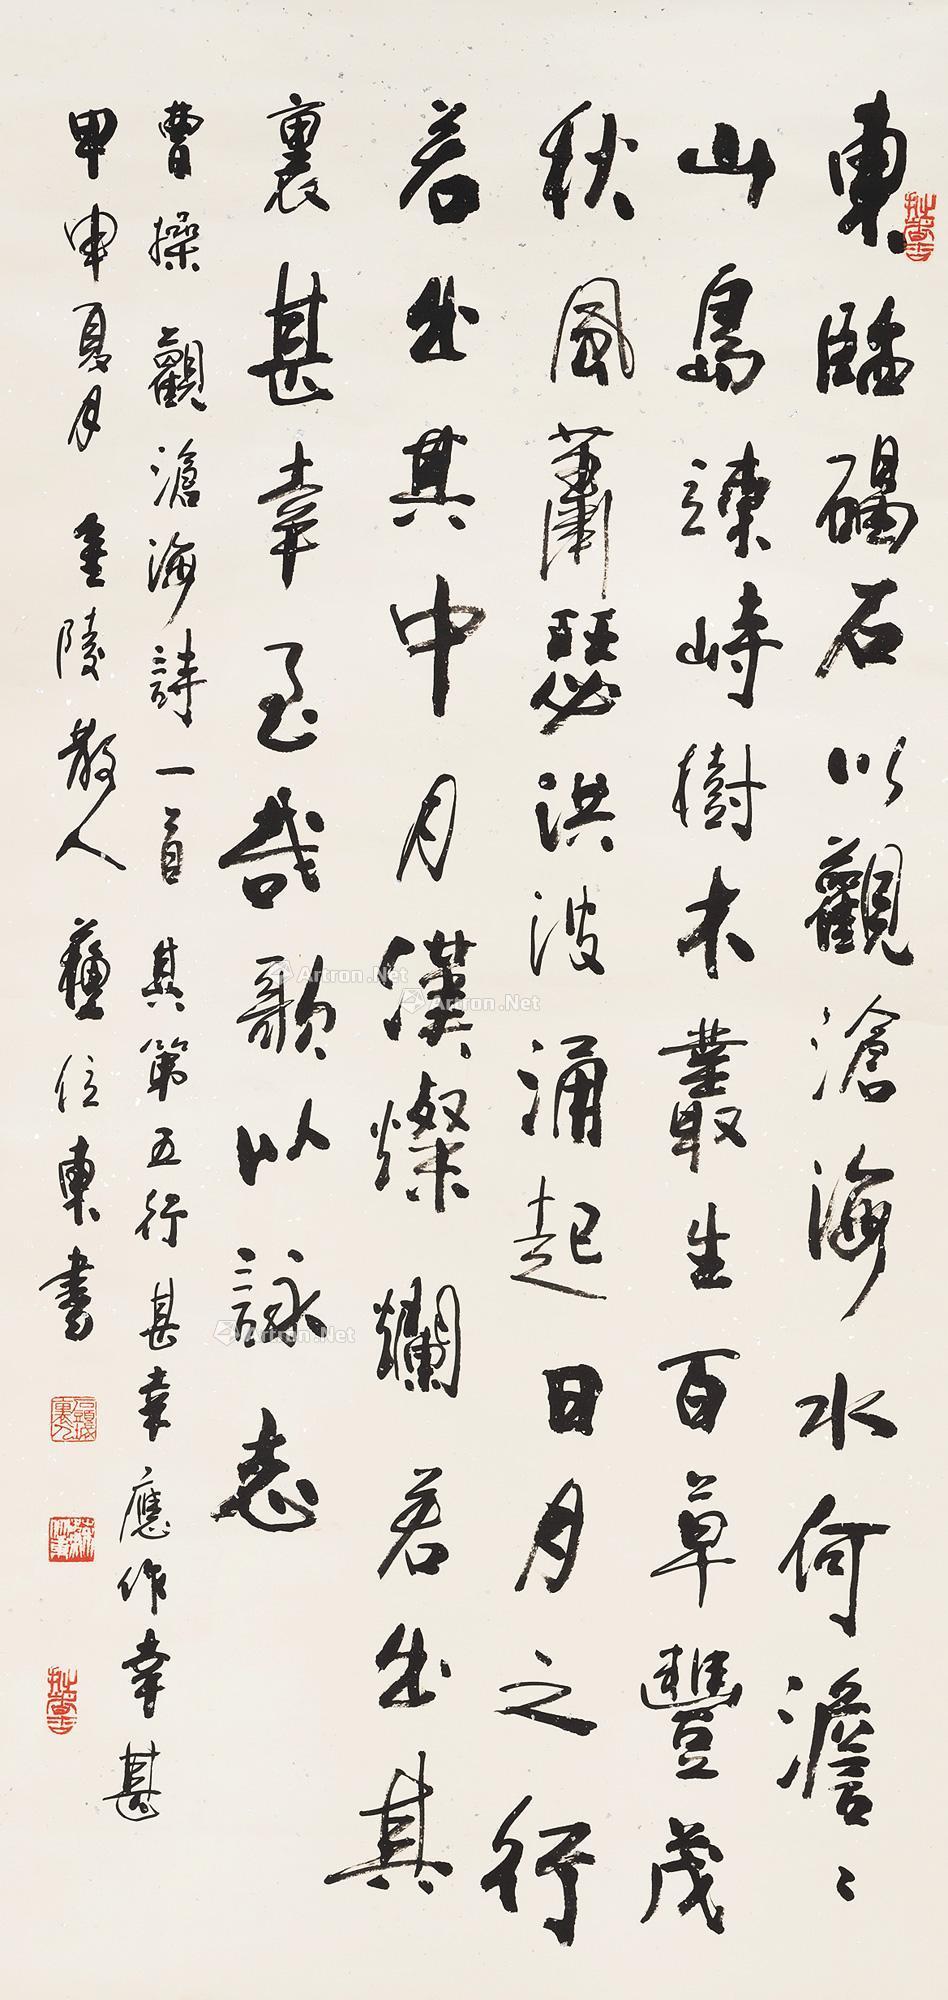 東臨碣石以觀滄海水何澹〻
山島竦峙樹木叢生百草豐茂
秋風蕭瑟洪波涌起日月之行
若出其中月漢燦爛若出其
裏甚幸至哉歌以詠志
曹操觀滄海詩一首其第五行甚幸應作幸甚
甲申夏月金陵散人蘇位東書
Artron.Net
Artron.Net
Artron.Net